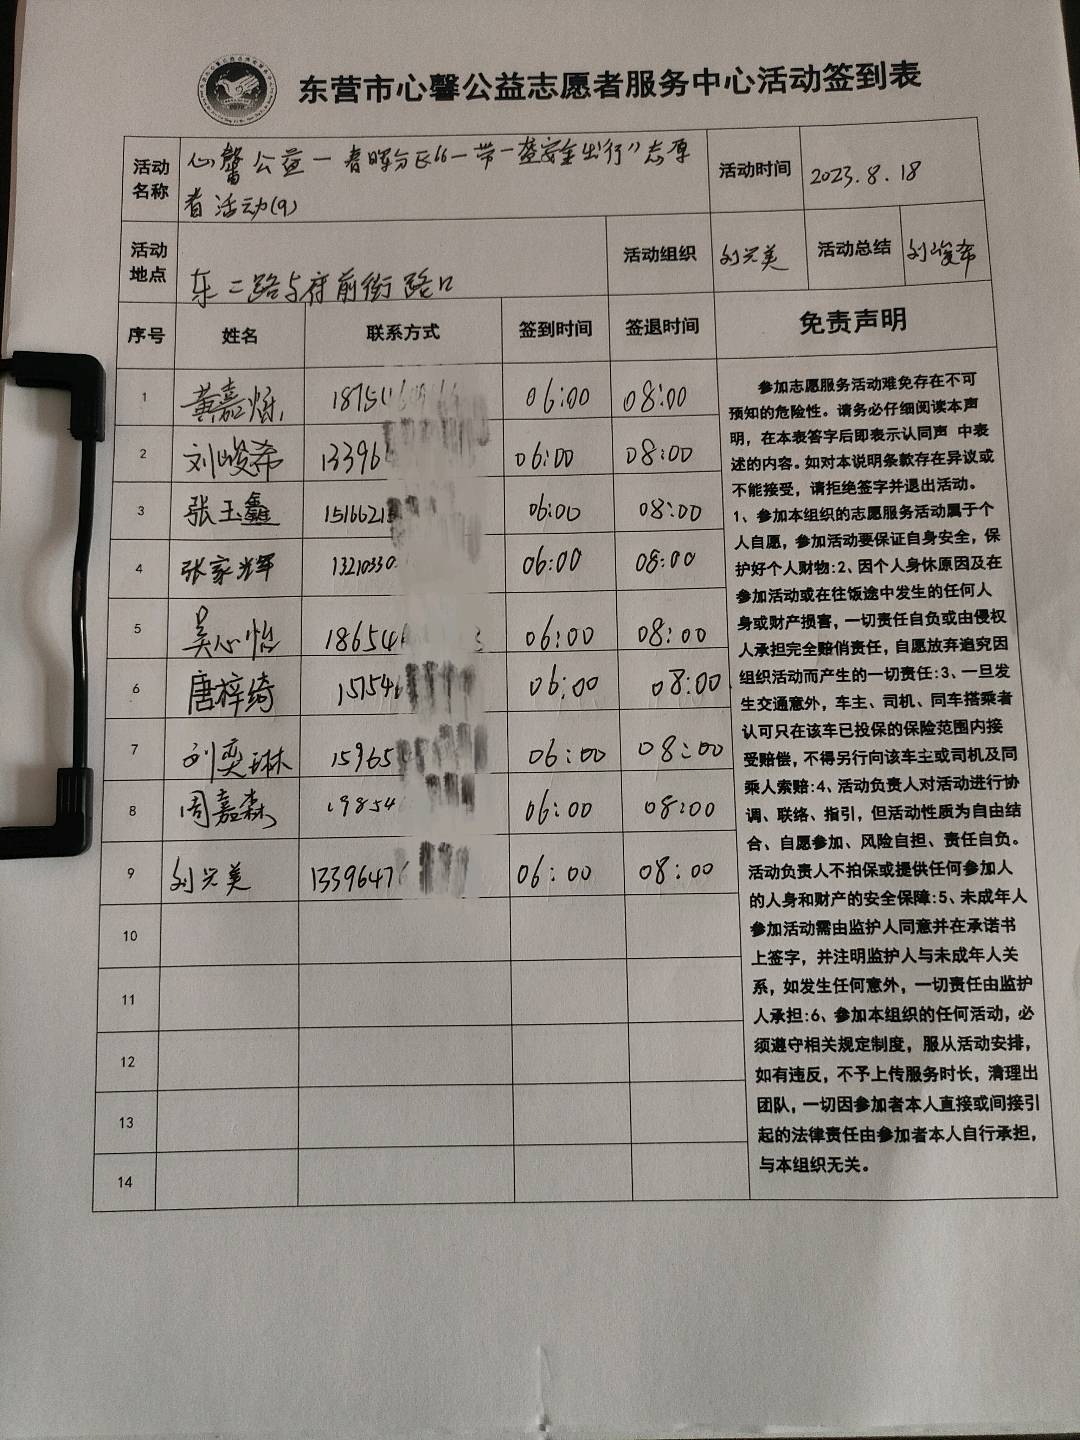 东营市心馨公益志愿者服务中心活动签到表
活动名称 心馨公益一春晖分队“一带一盔安全出行”志愿者活动(9) 活动时间 2023.8.18
活动地点 东二路与府前街路口 活动组织 刘兴美 活动总结 刘峻希
序号 姓名 联系方式 签到时间 签退时间 免责声明
1 黄嘉烁 18754 06:00 08:00
2 刘峻希 13396 06:00 08:00
3 张玉鑫 1516621 06:00 08:00
4 张家辉 13210330 06:00 08:00
5 吴心怡 18654 06:00 08:00
6 唐梓绮 151546 06:00 08:00
7 刘奕琳 15965 06:00 08:00
8 周嘉森 19854 06:00 08:00
9 刘兴美 1339647 06:00 08:00
10
11
12
13
14
参加志愿服务活动难免存在不可
预知的危险性。请务必仔细阅读本声
明，在本表答字后即表示认同声 中表
述的内容。如对本说明条款存在异议或
不能接受，请拒绝签字并退出活动。
1、参加本组织的志愿服务活动属于个
人自愿，参加活动要保证自身安全，保
护好个人财物:2、因个人身休原因及在
参加活动或在往饭途中发生的任何人
身或财产损害，一切责任自负或由侵权
人承担完全赔俏责任，自愿放弃追究因
组织活动而产生的一切责任:3、一旦发
生交通意外，车主、司机、同车搭乘者
认可只在该车已投保的保险范围内接
受赔偿，不得另行向该车主或司机及同
乘人索赔:4、活动负责人对活动进行协
调、联络、指引，但活动性质为自由结
合、自愿参加、风险自担、责任自负。
活动负责人不拍保或提供任何参加人
的人身和财产的安全保障:5、未成年人
参加活动需由监护人同意并在承诺书
上签字，并注明监护人与未成年人关
系，如发生任何意外，一切责任由监护
人承担:6、参加本组织的任何活动，必
须遵守相关规定制度，服从活动安排，
如有违反，不予上传服务时长，清理出
团队，一切因参加者本人直接或间接引
起的法律责任由参加者本人自行承担，
与本组织无关。